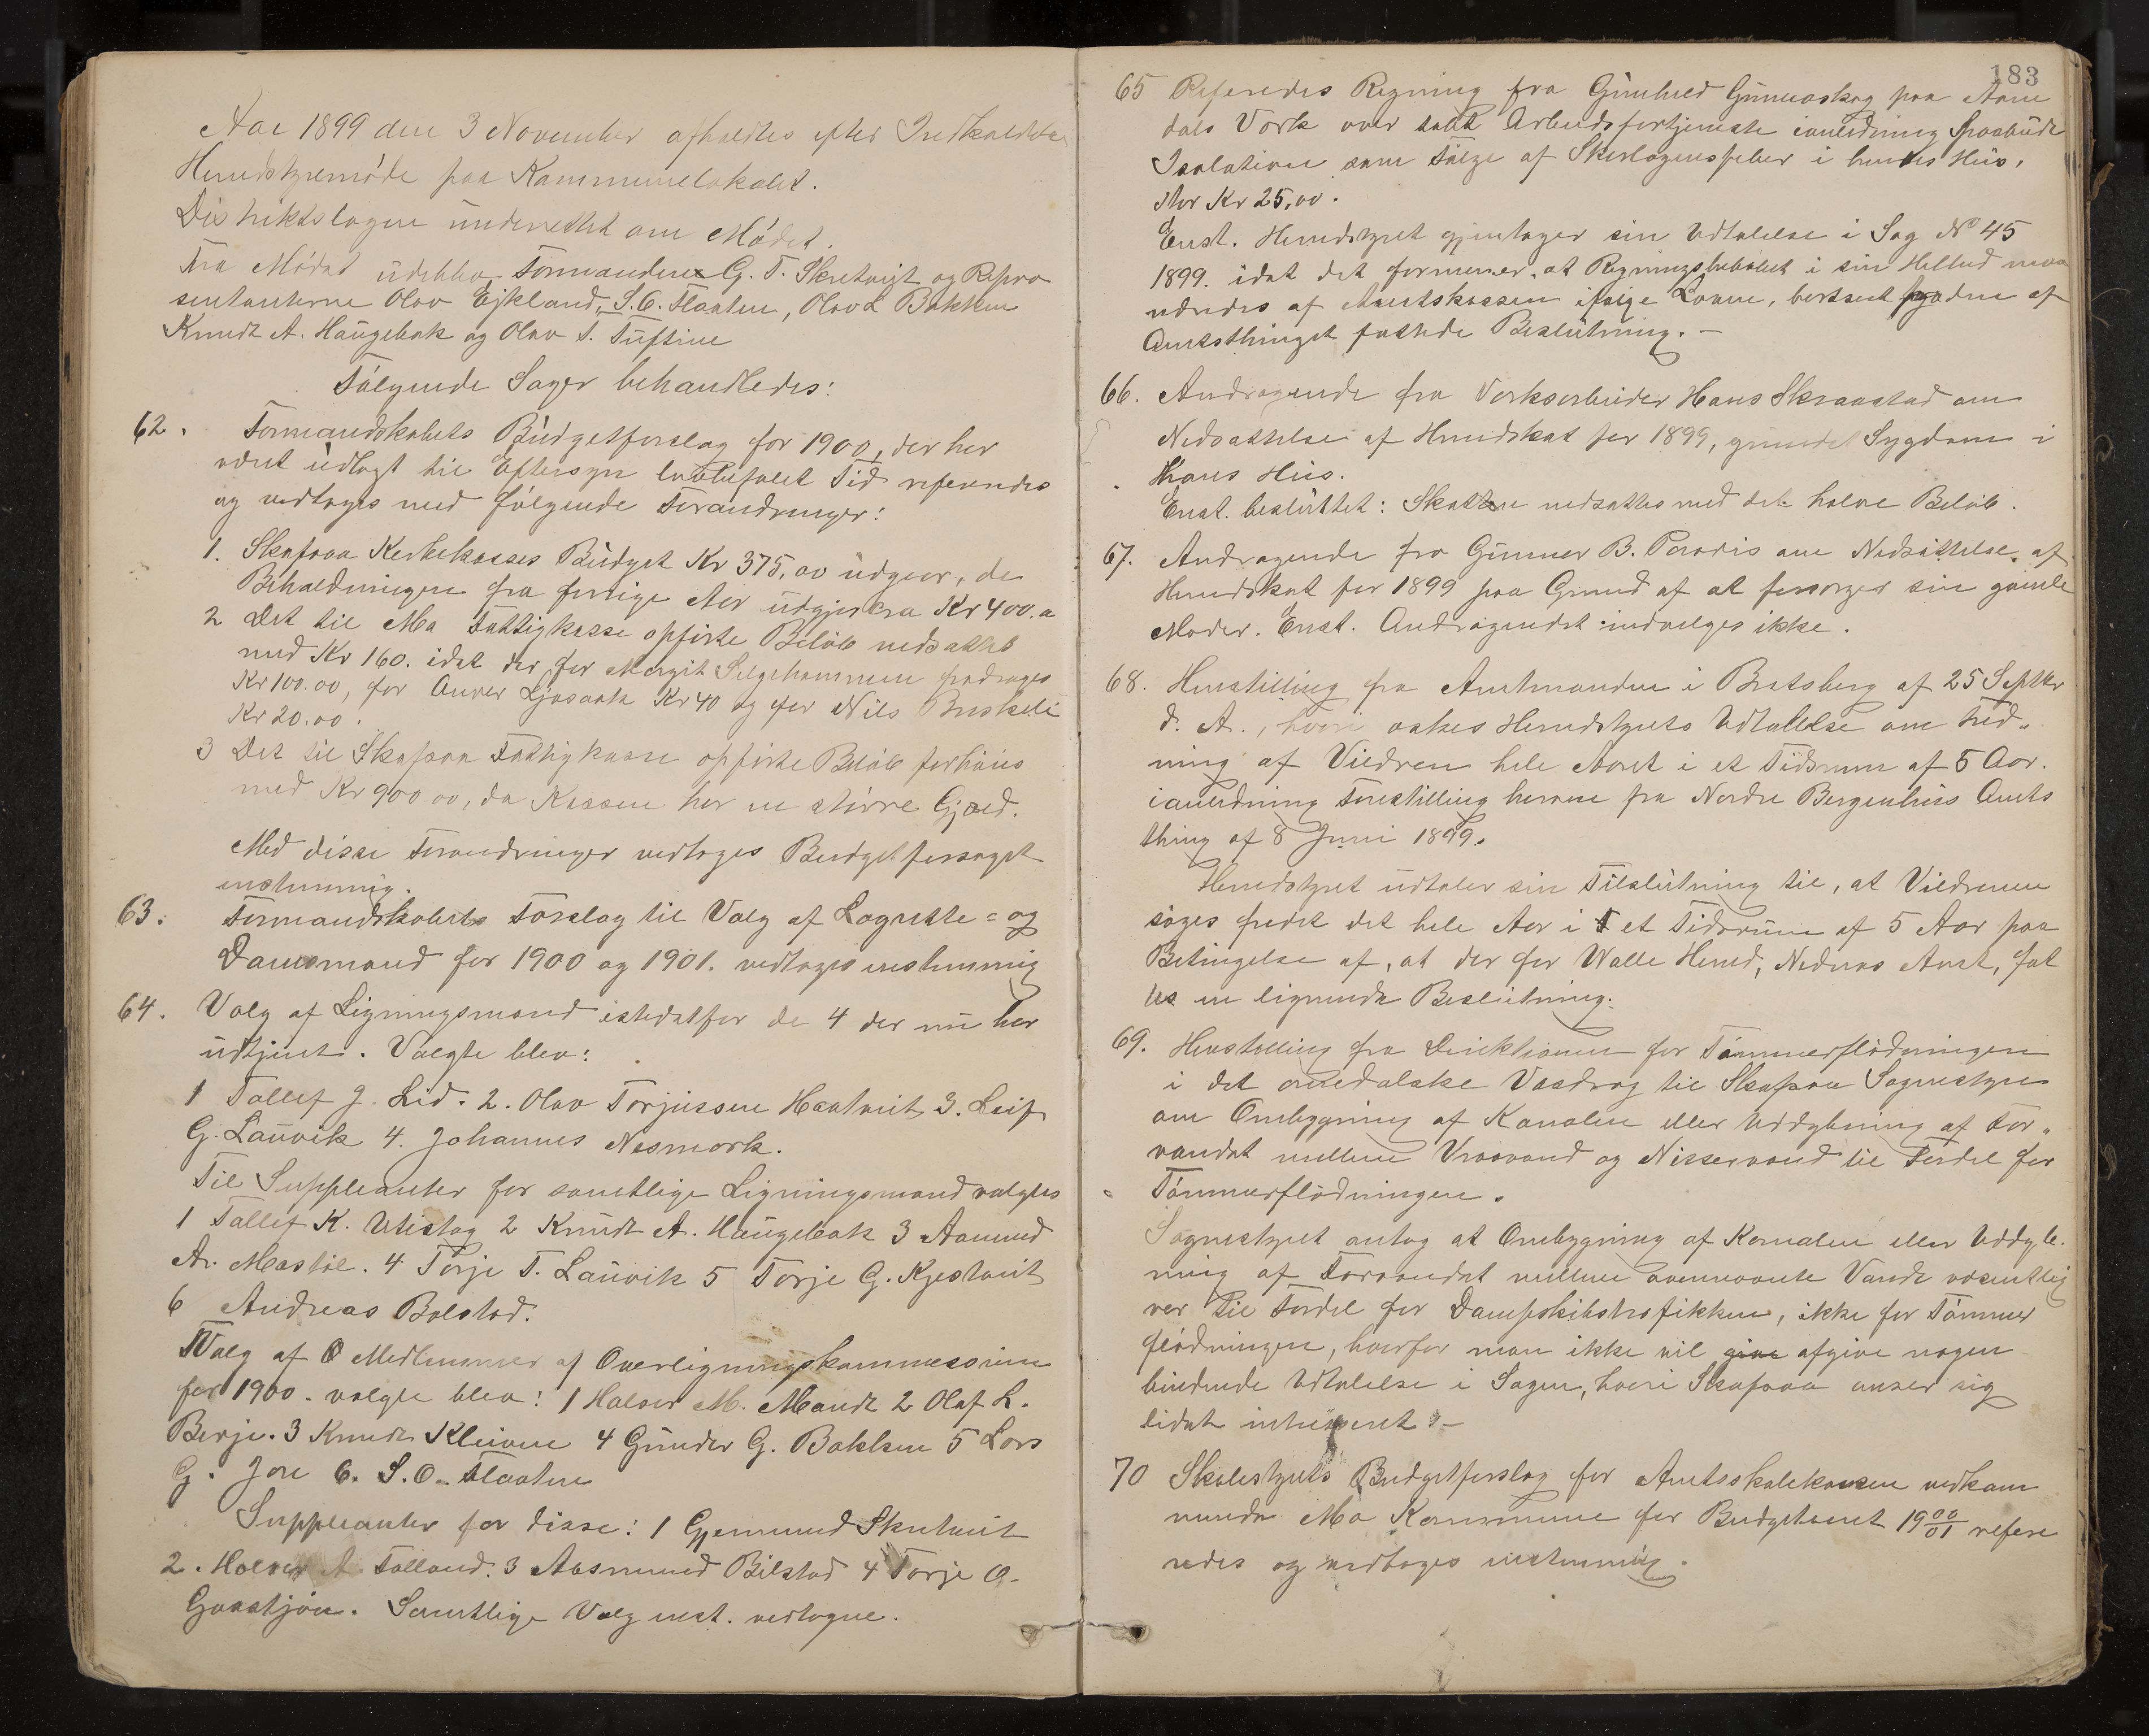 Aar 1899 den 3 November afholdtes efter Indkaldelse
Herredstyremøde paa Kommunelokalet.
Distriktslægen underrettet om Mødet.
Fra Mødet udeblev Formanden G. T. Skretveigt og Repræ
sentanterne Olav Ejkland, S. O. Flaaten, Olav L Bakken
Knudt A. Haugebak og Olav S. Tuftine
Følgende Sager behandledes:
62. Formandskabets Budgetforslag for 1900, der har
været udlagt til Eftersyn lovbefalet Tid refereredes
og vedtoges med følgende Forandringer:
1. Skafsaa Kirkekasses Budget Kr 375,00 udgaar, da
Beholdningen fra forrige Aar udgjør ca Kr 400.
2 Det til Mo Fattigkasse opførte Beløb nedsattes
med Kr 160. idet der for Margit Selgehammen fradrages
Kr 100.00, for Anver Ljosaak Kr 40 og for Nils Buskeli
Kr 20.00.
3 Det til Skafsaa Fattigkasse opførte Beløb forhøies
med Kr 900 00, da Kassen har en større Gjæld.
Med disse Forandringer vedtoges Budgetforslaget
enstemmig.
63. Formandskabets Forslag til Valg af Lagrette= og
Domsmænd for 1900 og 1901. vedtoges enstemmig
64. Valg af Ligningsmænd istedetfor de 4 der nu har
udtjent. Valgte blev:
1 Tallef J. Lid. 2. Olav Torjussen Haatveit 3. Leif
G. Lauvik 4. Johannes Nesmork.
Til Suppleanter for samtlige Ligningsmænd valgtes
1 Tallef K. Utistog 2 Knudt A. Haugebak 3 Aamund
A. Mostøl. 4 Torje T. Lauvik 5 Torje G. Kjestveit
6 Andreas Bolstad.
Valg af 6 Medlemmer af Overligningskommissionen
for 1900. valgte blev: 1 Halvor M. Mandt 2 Olaf L.
Berje. 3 Knudt Kleiven 4 Gunder G. Bakken 5 Lars
G. Jore 6. S. O. Flaaten
Suppleanter for disse: 1 Gjermund Skretveit
2. Halvor A. Folland. 3 Aasmund Bilstad 4 Torje O.
Gaastjøn. Samtlige Valg enst. vedtagne.
183
65 Referedes Regning fra Gunhild Gunneskog paa Aam
dals Værk over tabt Arbeidsfortjeneste ianledning paabudt
Isolation som Følge af Skarlagensfeber i hendes Hus,
stor Kr 25,00.
Enst. Herredstyret gjentager sin Udtalelse i Sag No 45
1899. idet det formener, at Regningsbeløbet i sin Helhed maa
udredes af Amtskassen ifølge Loven, bortseet fra den af
Amtsthinget fattede Beslutning. —
66. Andragende fra Værksarbeider Hans Skraastad om
Nedsættelse af Herredskat for 1899, grundet Sygdom i
Hans Hus.
Enst. besluttet: Skatten nedsættes med det halve Beløb.
67. Andragende fra Gunner B. Paradis om Nedsættelse af
Herredskat for 1899 paa Grund af at forsørger sin gamle
Moder. Enst. Andragendet indvilges ikke.
68. Henstilling fra Amtmanden i Bratsberg af 25 Septbr
d. A., hvori øskes Herredstyrets Udtalelse om Fred-
ning af Vildren hele Aaret i et Tidsrum af 5 Aar.
ianledning Forestilling herom fra Nordre Bergenhus Amts
thing af 8 Juni 1899.
Herredstyret udtaler sin Tilslutning til, at Vildrenen
søges fredet det hele Aar i et Tidsrum af 5 Aar paa
Betingelse af, at der for Walle Herred, Nedenæs Amt, fat
tes en lignende Beslutning.
69. Henstilling fra Direktionen for Tømmerflødningen
i det arendalske Vasdrag til Skafsaa Sognestyre
om Ombygning af Kanalen eller Uddybning af Far-
vandet mellem Vraavand og Nisservand til Fordel for
Tømmerflødningen.
Sognestyret antog at Ombygning af Kanalen eller Uddyb-
ning af Farvandet mellem ovennævnte Vande væsentlig
var til Fordel for Dampskibstrafikken, ikke for Tømmer
flødningen, hvorfor man ikke vil give afgive nogen
bindende Udtalelse i Sagen, hvori Skafsaa anser sig
lidet interesseret. —
70 Skolestyrets Budgetforslag for Amtsskolekassen vedkom
mende Mo Kommune for Budgetaaret 1900/01 refere
redes og vedtoges enstemmig.